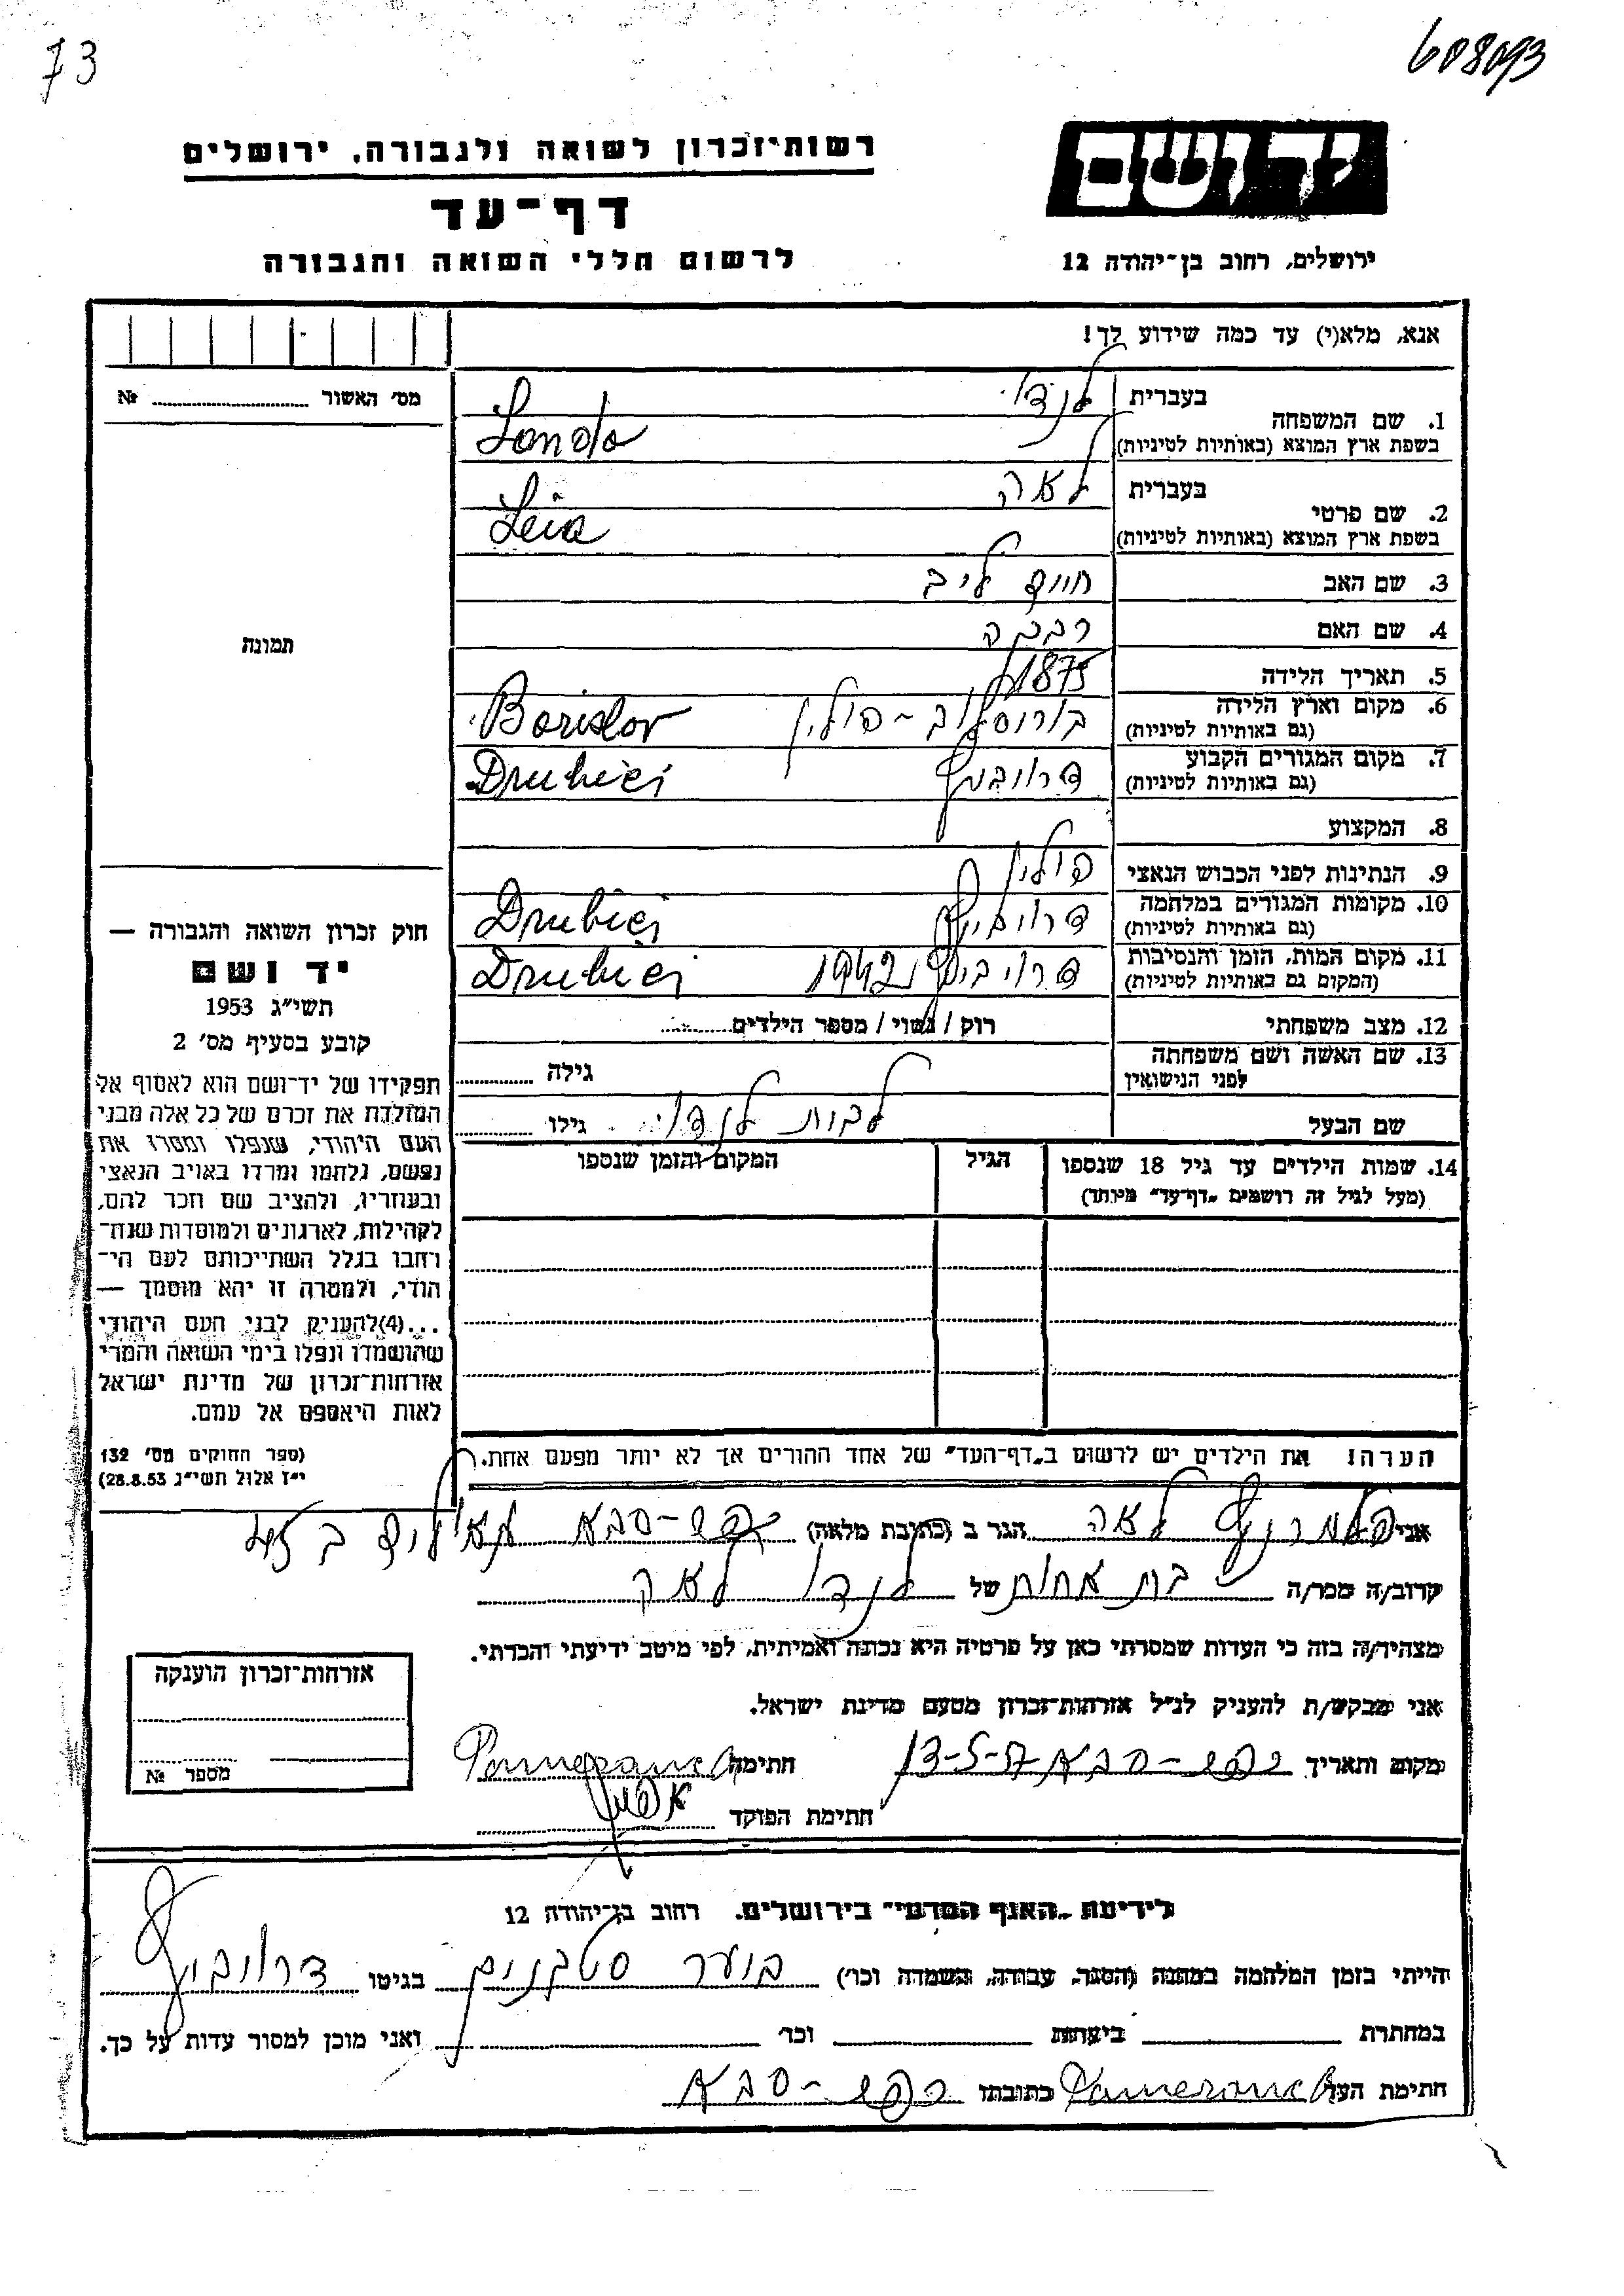 73
608093
רשות־זכרון לשואה ולגבורה, ירושלים
דף־עד
לרשום חללי השואה והגבורה
יד ושם
ירושלים, רחוב בן־יהודה 12
אנא, מלא(י) עד כמה שידוע לך!
מס' האשור № 
1. שם המשפחה
בעברית לנדו
בשפת ארץ המוצא (באותיות לטיניות) Lando
2. שם פרטי
בעברית לאה
בשפת ארץ המוצא (באותיות לטיניות) Leia
3. שם האב חיים ליב
4. שם האם רבקה
תמונה
5. תאריך הלידה 1875
6. מקום וארץ הלידה
(גם באותיות לטיניות) בוריסלוב - פולין Borislov
7. מקום המגורים הקבוע
(גם באותיות לטיניות) Druhici
8. המקצוע
9. הנתינות לפני הכבוש הנאצי פולין
10. מקומות המגורים במלחמה
(גם באותיות לטיניות) Drubici
11. מקום המות, הזמן והנסיבות
(המקום גם באותיות לטיניות) 1942 Druhici
12. מצב משפחתי רוק / נשוי / מספר הילדים
13. שם האשה ושם משפחתה
לפני הנישואין גילה
שם הבעל לנדו גילו
14. שמות הילדים עד גיל 18 שנספו
(מעל לגיל זה רושמים „דף־עד" מיוחד)
הגיל
המקום והזמן שנספו
חוק זכרון השואה והגבורה —
יד ושם
תשי"ג 1953
קובע בסעיף מס' 2
תפקידו של יד־ושם הוא לאסוף אל
המולדת את זכרם של כל אלה מבני
העם היהודי, שנפלו ומסרו את
נפשם, נלחמו ומרדו באויב הנאצי
ובעוזריו, ולהציב שם וזכר להם,
לקהילות, לארגונים ולמוסדות שנח־
רחבו בגלל השתייכותם לעם הי־
הודי, ולמטרה זו יהא מוסמך —
...(4)להעניק לבני העם היהודי
שהושמדו ונפלו בימי השואה והמרי
אזרחות־זכרון של מדינת ישראל
לאות היאספם אל עמם.
(ספר החוקים מס' 132
י"ז אלול תשי"ג 28.8.53)
הערה! את הילדים יש לרשום ב„דף־העד" של אחד ההורים אך לא יותר מפעם אחת.
אני לאה הגר ב (כתובת מלאה) כפר-סבא
קרוב/ה מכר/ה בת אחות של לנדו לאה
מצהיר/ה בזה כי העדות שמסרתי כאן על פרטיה היא נכונה ואמיתית, לפי מיטב ידיעתי והכרתי.
אני מבקש/ת להעניק לנ"ל אזרחות־זכרון מטעם מדינת ישראל.
מקום ותאריך כפר-סבא חתימה Pomeranch
חתימת הפוקד
אזרחות־זכרון הוענקה
מספר №
לידיעת „האגף המדעי" בירושלים. רחוב בן־יהודה 12
הייתי בזמן המלחמה במחנה (הסגר, עבודה, השמדה וכו') בגיטו
במחתרת ביערות וכו' ואני מוכן למסור עדות על כך.
חתימת העד Pameranch כתובתו כפר-סבא